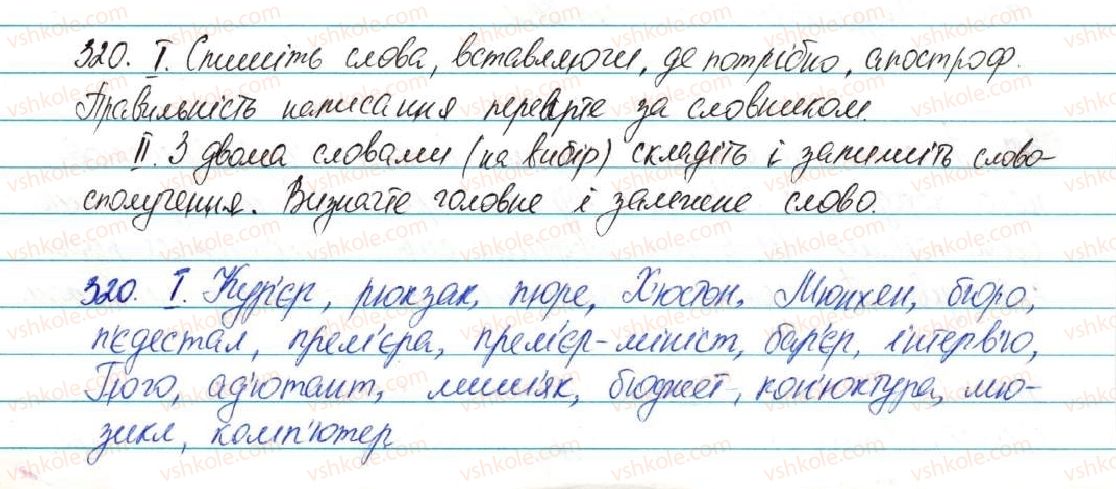 320. І. Спишіть слова, вставляючи, де потрібно, апостроф.
Правильність написання перевірте за словником.
ІІ. З двома словами (на вибір) складіть і запишіть слово-
сполучення. Визначте головне і залежне слово.
320. І. Кур'єр, рюкзак, пюре, Х'юстон, Мюнхен, бюро,
п'єдестал, прем'єра, прем'єр-мініст, бар'єр, інтерв'ю,
Гюго, ад'ютант, миш'як, бюджет, кон'юктура, мю-
зикл, комп'ютер
vshkole.com